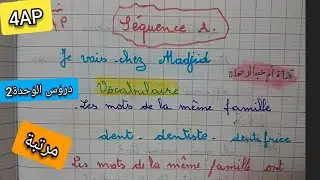 4AP
Séquence 2.
Je vais chez Madjid
Vocabulaire
دروس الوحدة2
. Les mots de la même famille
مرتبة
dent - dentiste - dentifrice
Les mots de la même famille ont